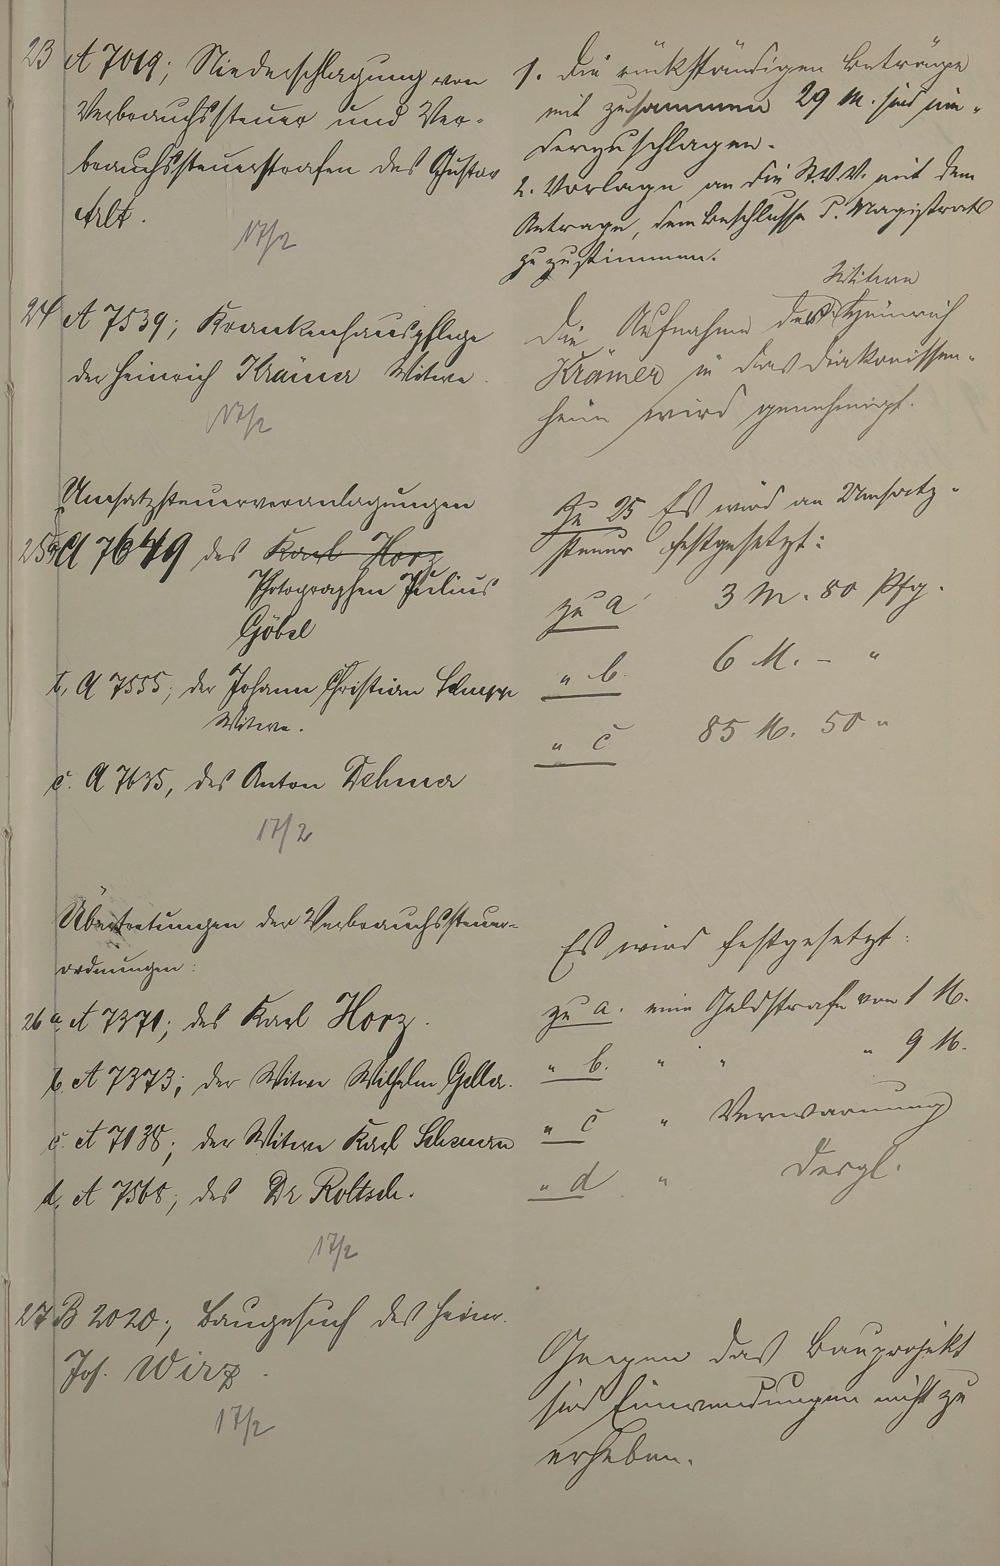 23 A 7019; Niederschlagung von
Verbrauchssteuer und Ver-
brauchssteuerstrafen des Gustav
Arlt.
17/2
1. Die rückständigen Beträge
mit zusammen 29 M. sind nie-
derzuschlagen.
2. Vorlage an die St.V.V. mit dem
Antrage, dem Beschlusse d. Magistrats
zuzustimmen.
24 A 7539; Krankenhauspflege
der Heinrich Krämer Witwe.
17/2
Witwe
Die Aufnahme der Heinrich
Krämer in das Diakonissen-
heim wird genehmigt.
Umsatzsteuerveranlagungen
25 a A 7649 des Karl Horz
Photographen Julius
Göbel
b. A 7555; der Johann Christian
Witwe.
c. A 7635, des Anton
17/2
Zu 25 Es wird an Umsatz-
steuer festgesetzt:
zu a 3 M. 80 Pfg.
" b. 6 M. – "
" c 85 M. 50 "
Übertretungen der Verbrauchssteuer-
ordnungen:
26 a. A 7371; des Karl Horz.
b. A 7373; der Witwe Wilhelm
c. A 7138; der Witwe Karl
d. A 7568; des Dr
17/2
Es wird festgesetzt:
zu a. eine Geldstrafe von 1 M.
" b. " " " 9 M.
" c " Verwarnung
" d " dergl.
27 B 2020; Baugesuch des Herrn
Jos. Wirz.
17/2
Gegen das Bauprojekt
sind Einwendungen nicht zu
erheben.